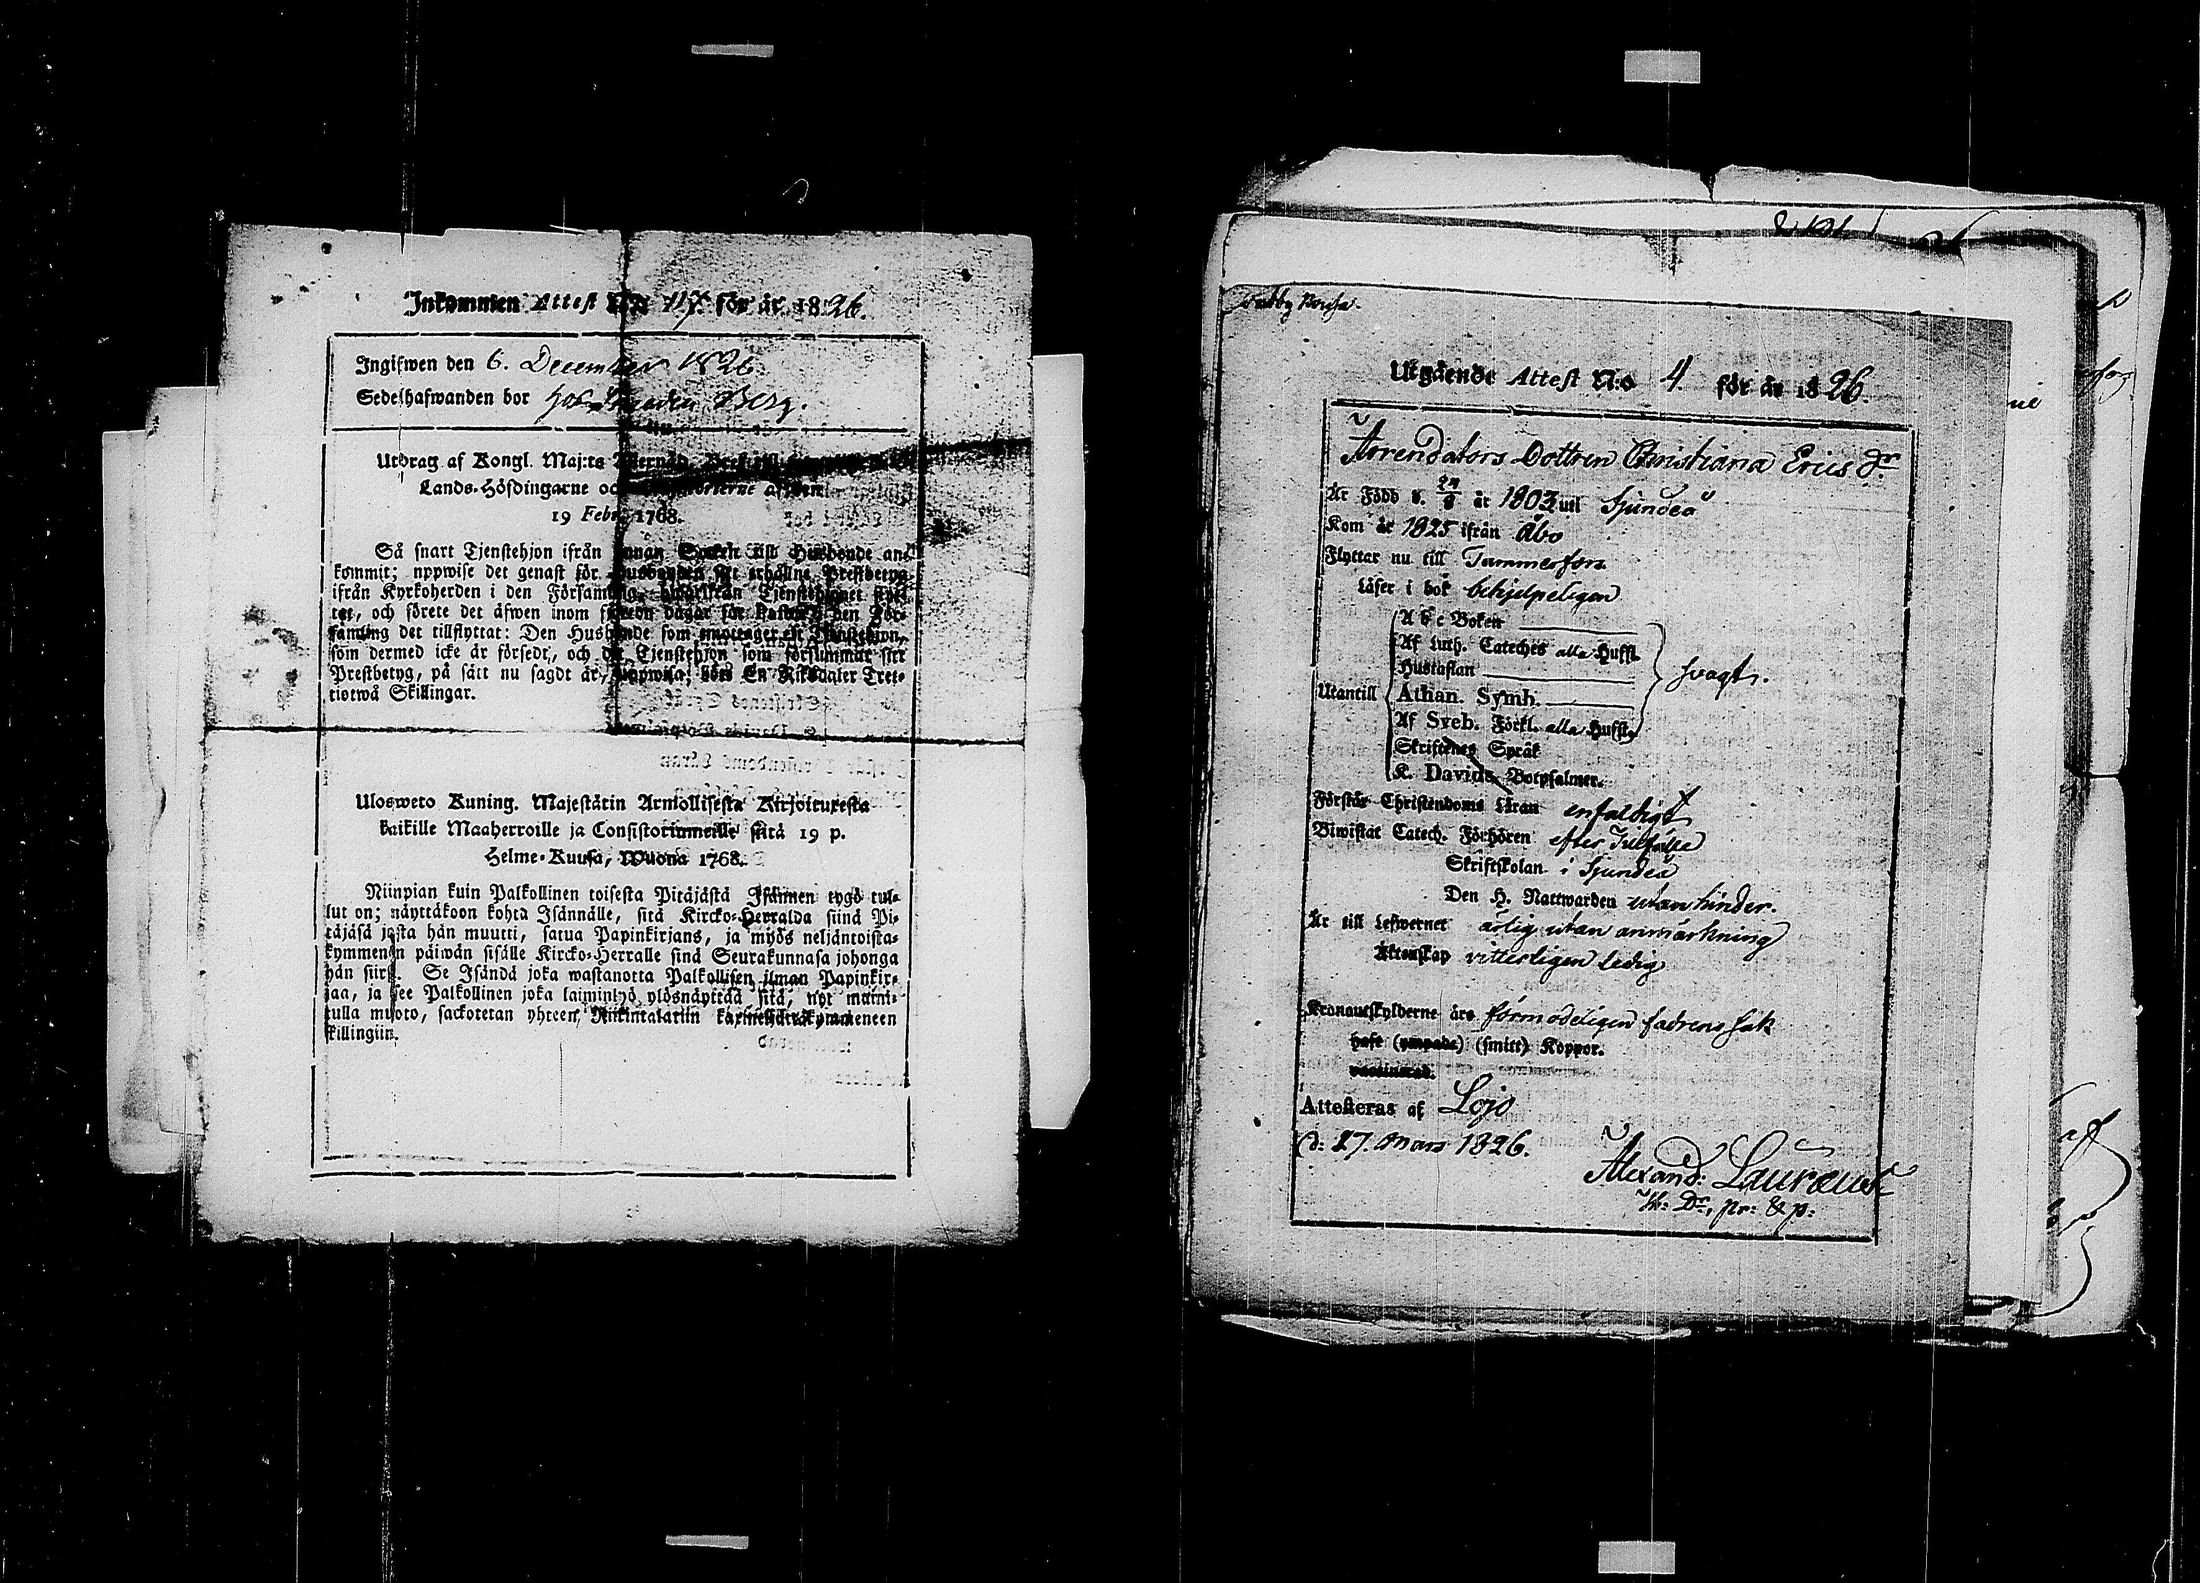 Inkommen Attest N:o 117. för år 1826.
Ingifwen den 6. December 1826.
Sedelhafwanden bor hos Berg.
Utdrag af Kongl. Maj:ts
Lands-Höfdingarne och af den
19 Febr. 1768.
Så snart Tjenstehjon ifrån annan Socken till Husbonde an-
kommit; uppwise det genast för Husbonden sitt erhållne Prestbetyg
ifrån Kyrkoherden i den Församling, hwarifrån Tjenstehjonet flyt-
tat, och förete det äfwen inom fjorton dagar för Pastor i den För-
samling det tillflyttat: Den Husbonde som emottager ett Tjenstehjon,
som dermed icke är försedt, och det Tjenstehjon som försummar sitt
Prestbetyg, på sätt nu sagdt är, uppwisa, böte En Riksdaler Tret-
tiotwå Skillingar.
Ulosweto Kuning. Majestätin Armollisesta Kirjoituxesta
kaikille Maaherroille ja Consistoriumeille siitä 19 p.
Helme-Kuusa, Wuona 1768.
Niinpian kuin Palkollinen toisesta Pitäjästä Isännen tygö tul-
lut on; näyttäkoon kohta Isännälle, sitä Kircko-Herralda siinä Pi-
täjäsä josta hän muutti, saatua Papinkirjans, ja myös neljäntoista-
kymmenen päiwän sisälle Kircko-Herralle siinä Seurakunnasa johonga
hän siirs. Se Isändä joka wastanotta Palkollisen ilman Papinkir-
jaa, ja see Palkollinen joka laiminlyö ylösnäyttää sitä, nyt maini-
tulla muoto, sackotetan yhteen Riikintalariin kaxineljättäkymmeneen
skillingiin.
Utgående Attest N:o 4. för år 1826.
Arrendators Dottren Christiana Erics dr
Är Född d. 24/8 år 1803 uti Sjundeå
Kom år 1825 ifrån Åbo
Flyttar nu till Tammerfors
Läser i bok behjelpeligen
A b c Boken
Af Luth. Cateches alla Hufst.
Hustaflan
Utantill Athan. Symb. svagt.
Af Sveb. Förkl. alla Hufst.
Skriftenes Språk
K. Davids Botpsalmer.
Förstår Christendoms Läran enfaldigt
Biwistat Catech. Förhören efter Tillfälle
Skriftskolan i Sjundeå
Den H. Nattwarden utan hinder.
Är till Lefwernet ärlig utan anmärkning
Äktenskap vitterligen ledig
Kronoutskylderne äro förmodeligen fadrens sak
haft (ympade) (smitt) Koppor.
vaccinerad.
Attesteras af Lojo
d: 27. Mars 1826.
Alexand: Lauræus
Th: Dr, pr: & p: